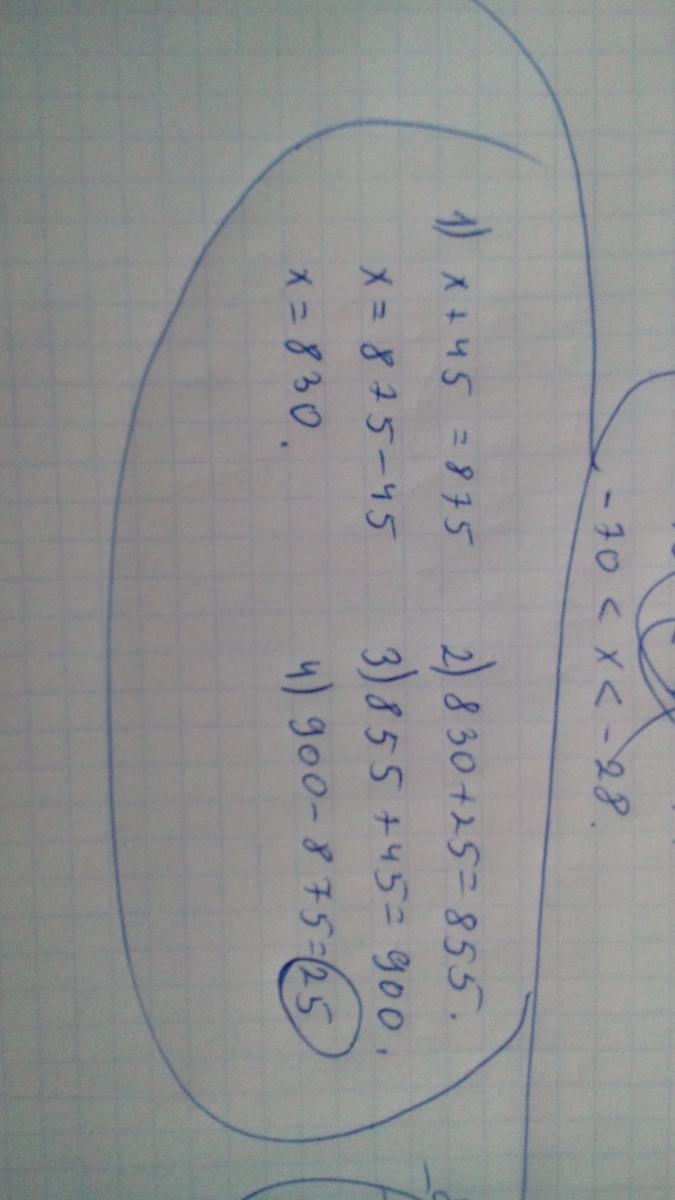 -70 < x < -28.
1) x + 45 = 875
x = 875 - 45
x = 830.
2) 830 + 25 = 855.
3) 855 + 45 = 900.
4) 900 - 875 = 25